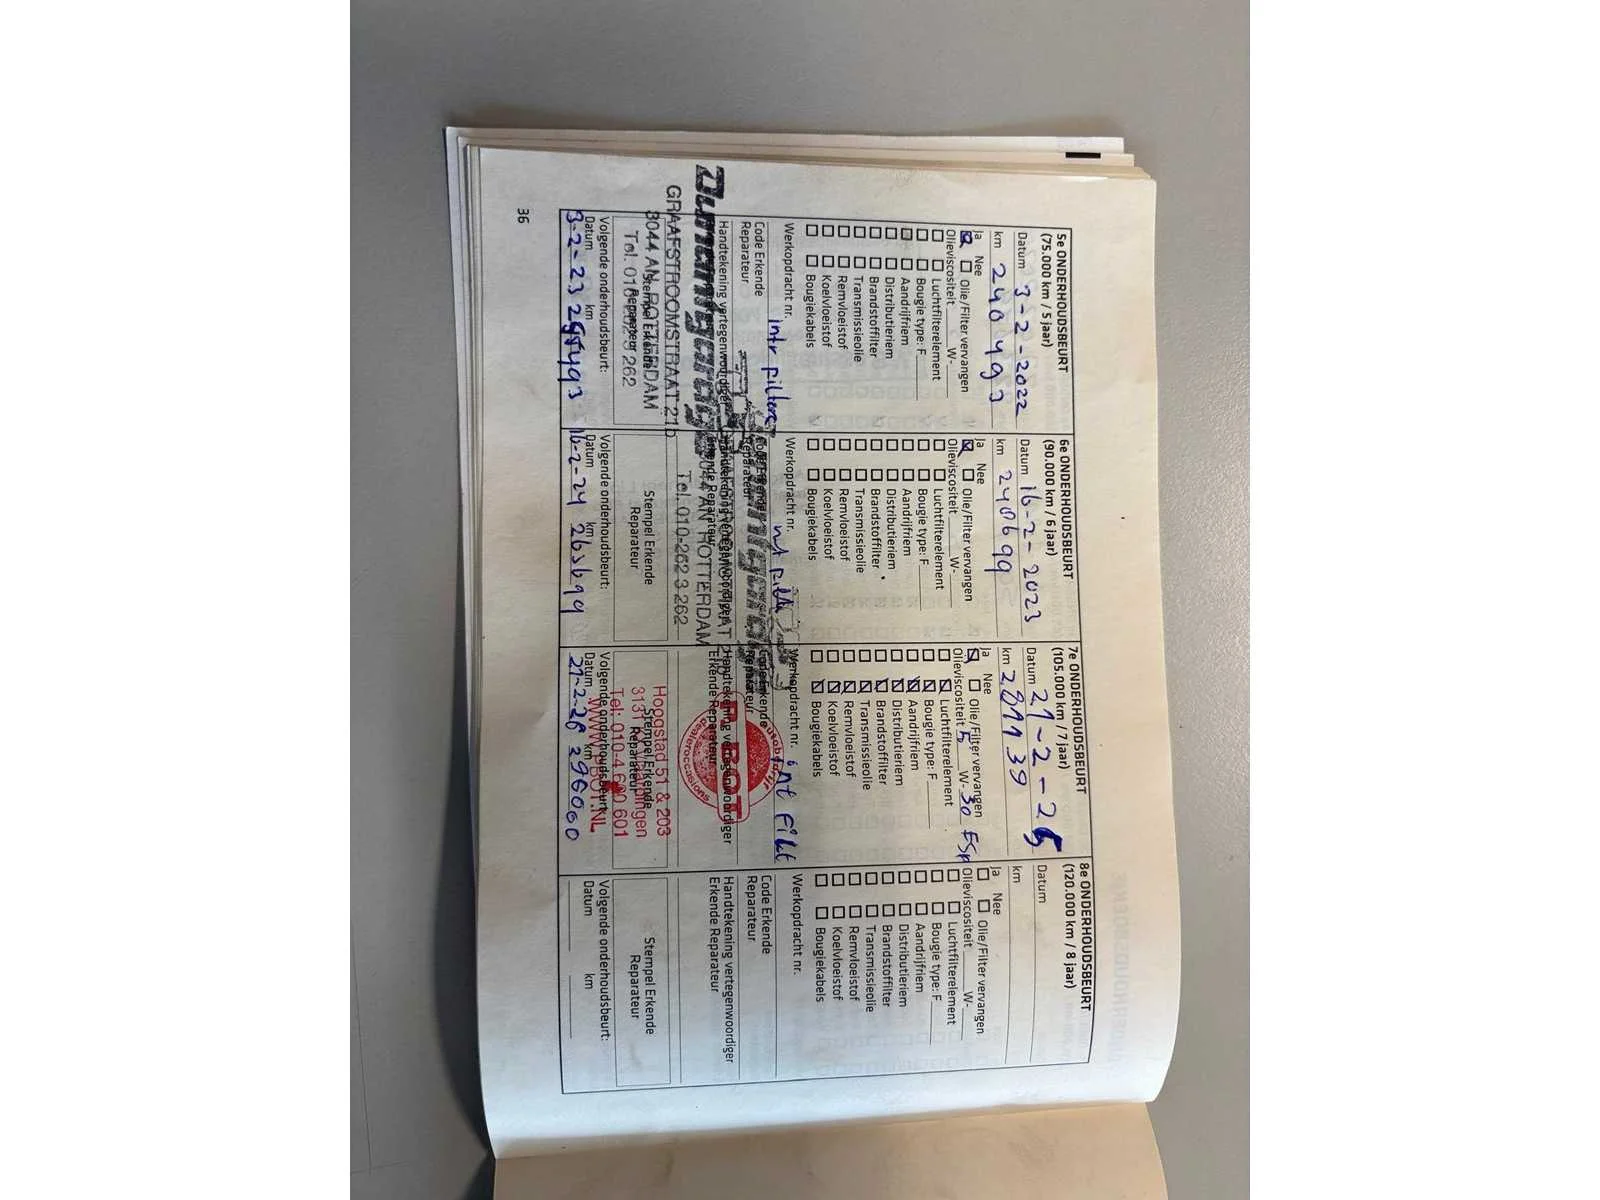 5e ONDERHOUDSBEURT
(75.000 km / 5 jaar)
Datum 3-2-2022
km 240493
Ja Nee
Olie/Filter vervangen
Olieviscositeit W-
Luchtfilterelement
Bougie type: F
Aandrijfriem
Distributieriem
Brandstoffilter
Transmissieolie
Remvloeistof
Koelvloeistof
Bougiekabels
Werkopdracht nr.
Code Erkende
Reparateur
Handtekening vertegenwoordiger
GRAAFSTROOMSTRAAT 21b
3044 AN ROTTERDAM
Tel. 010-2623262
Stempel Erkende
Reparateur
Volgende onderhoudsbeurt:
Datum km
3-2-23
6e ONDERHOUDSBEURT
(90.000 km / 6 jaar)
Datum 16-2-2023
km 248699
Ja Nee
Olie/Filter vervangen
Olieviscositeit W-
Luchtfilterelement
Bougie type: F
Aandrijfriem
Distributieriem
Brandstoffilter
Transmissieolie
Remvloeistof
Koelvloeistof
Bougiekabels
Werkopdracht nr.
Reparateur
Erkende Reparateur
3044 AN ROTTERDAM
Tel. 010-2623262
Stempel Erkende
Reparateur
Volgende onderhoudsbeurt:
Datum km
16-2-24 263699
7e ONDERHOUDSBEURT
(105.000 km / 7 jaar)
Datum 21-2-25
km 281139
Ja Nee
Olie/Filter vervangen
Olieviscositeit 5 W- 30
Luchtfilterelement
Bougie type: F
Aandrijfriem
Distributieriem
Brandstoffilter
Transmissieolie
Remvloeistof
Koelvloeistof
Bougiekabels
Werkopdracht nr. int Filt
Code Erkende
Reparateur
Handtekening vertegenwoordiger
Erkende Reparateur
BOT
Hoogstad 51 & 203
Tel: 010-4 600 601
Stempel Erkende
Reparateur
Volgende onderhoudsbeurt:
Datum km
21-2-26 296000
8e ONDERHOUDSBEURT
(120.000 km / 8 jaar)
Datum
km
Ja Nee
Olie/Filter vervangen
Olieviscositeit W-
Luchtfilterelement
Bougie type: F
Aandrijfriem
Distributieriem
Brandstoffilter
Transmissieolie
Remvloeistof
Koelvloeistof
Bougiekabels
Werkopdracht nr.
Code Erkende
Reparateur
Handtekening vertegenwoordiger
Erkende Reparateur
Stempel Erkende
Reparateur
Volgende onderhoudsbeurt:
Datum km
36